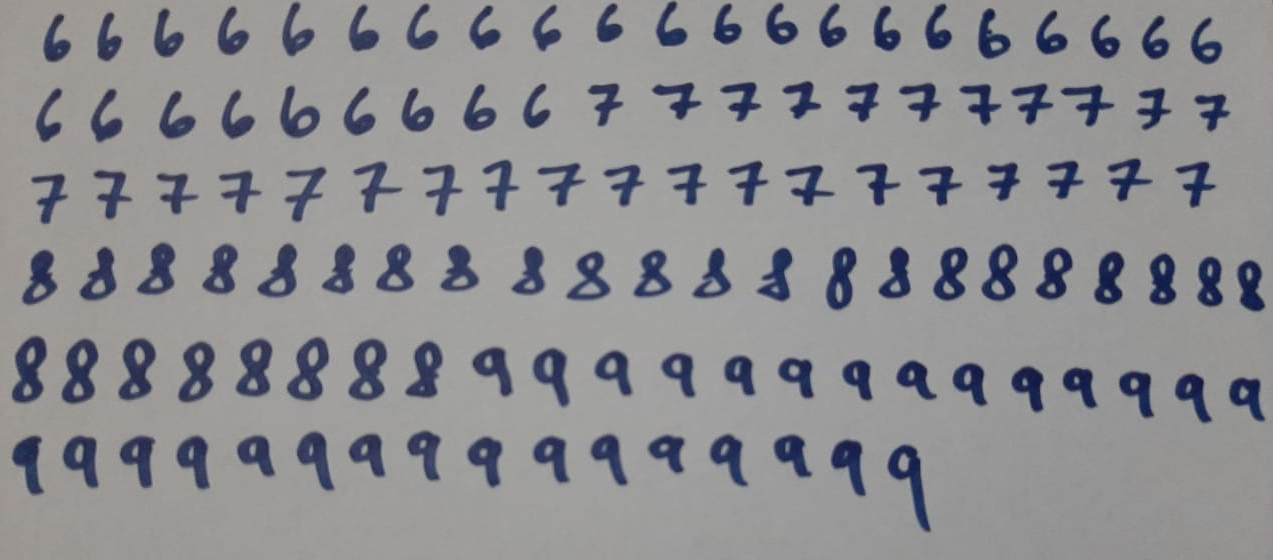 6 6 6 6 6 6 6 6 6 6 6 6 6 6 6 6 6 6 6 6 6
6 6 6 6 6 6 6 6 6 7 7 7 7 7 7 7 7 7 7 7
7 7 7 7 7 7 7 7 7 7 7 7 7 7 7 7 7 7 7
8 8 8 8 8 8 8 8 8 8 8 8 8 8 8 8 8 8 8 8 8 8
8 8 8 8 8 8 8 8 9 9 9 9 9 9 9 9 9 9 9 9 9 9
9 9 9 9 9 9 9 9 9 9 9 9 9 9 9 9